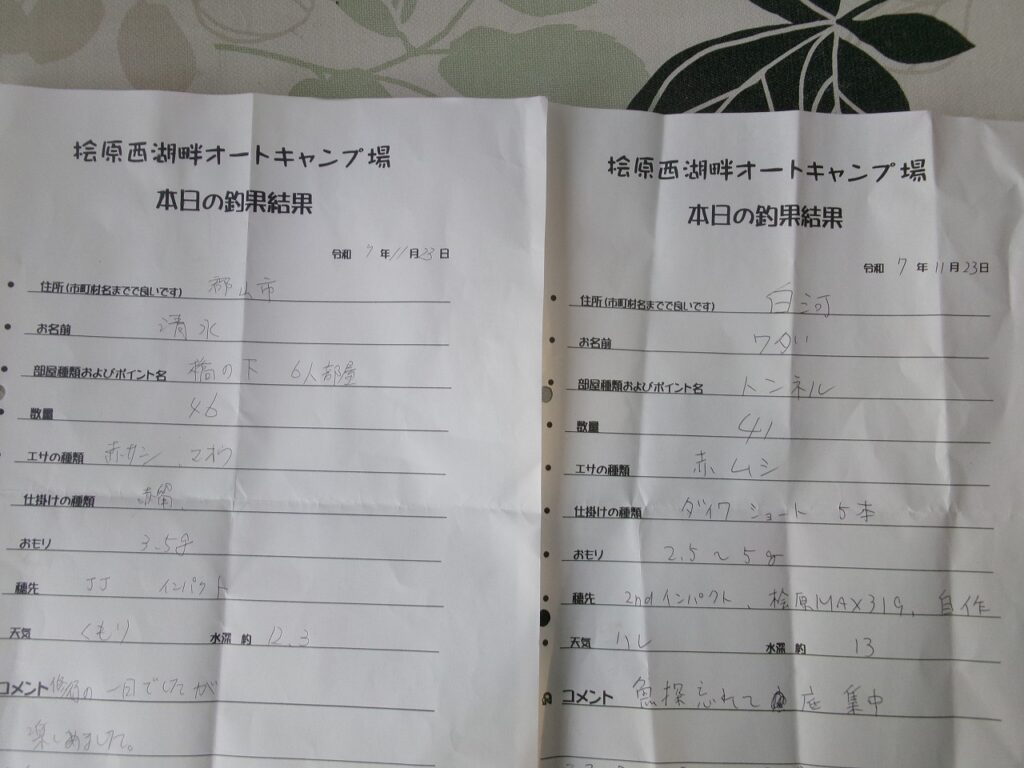 桧原西湖畔オートキャンプ場
本日の釣果結果
令和 7 年 11 月 23 日
住所(市町村名までで良いです) 郡山市
お名前 清水
部屋種類およびポイント名 橋の下 6人部屋
数量 46
エサの種類 赤サシ
仕掛けの種類
おもり 3.5g
穂先 JJ インパクト
天気 くもり 水深 約 12.3
コメント 修行の一日でしたが
楽しめました。
桧原西湖畔オートキャンプ場
本日の釣果結果
令和 7 年 11 月 23 日
住所(市町村名までで良いです) 白河
お名前
部屋種類およびポイント名 トンネル
数量 41
エサの種類 赤ムシ
仕掛けの種類 ダイワ ショート 5本
おもり 2.5〜5g
穂先 2nd インパクト、桧原MAX31g、自作
天気 ハレ 水深 約 13
コメント 魚探忘れて 底集中